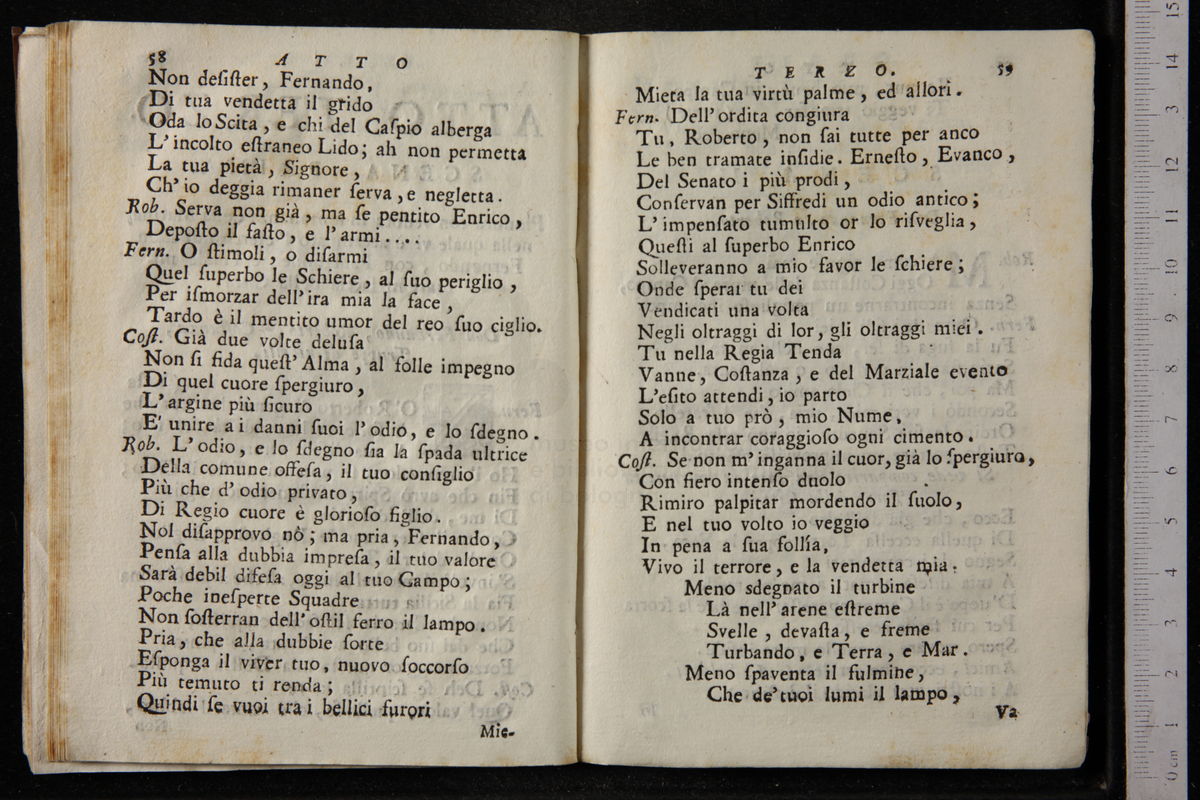 58 ATTO
Non deſiſter, Fernando,
Di tua vendetta il grido
Oda lo Scita, e chi del Caſpio alberga
L'incolto eſtraneo Lido; ah non permetta
La tua pietà, Signore,
Ch'io deggia rimaner ſerva, e negletta.
Rob. Serva non già, ma ſe pentito Enrico,
Depoſto il faſto, e l'armi....
Fern. O ſtimoli, o diſarmi
Quel ſuperbo le Schiere, al ſuo periglio,
Per iſmorzar dell'ira mia la face,
Tardo è il mentito umor del reo ſuo ciglio.
Coſt. Già due volte deluſa
Non ſi fida queſt'Alma, al folle impegno
Di quel cuore ſpergiuro,
L'argine più ſicuro
E' unire a i danni ſuoi l'odio, e lo ſdegno.
Rob. L'odio, e lo ſdegno ſia la ſpada ultrice
Della comune offeſa, il tuo conſiglio
Più che d'odio privato,
Di Regio cuore è glorioſo figlio.
Nol diſapprovo nò; ma pria, Fernando,
Penſa alla dubbia impreſa, il tuo valore
Sarà debil difeſa oggi al tuo Campo;
Poche ineſperte Squadre
Non ſoſterran dell'oſtil ferro il lampo.
Pria, che alla dubbie ſorte
Eſponga il viver tuo, nuovo ſoccorſo
Più temuto ti renda;
Quindi ſe vuoi tra i bellici furori
Mie-
TERZO. 59
Mieta la tua virtù palme, ed allori.
Fern. Dell'ordita congiura
Tu, Roberto, non ſai tutte per anco
Le ben tramate inſidie. Erneſto, Evanco,
Del Senato i più prodi,
Conſervan per Siffredi un odio antico;
L'impenſato tumulto or lo riſveglia,
Queſti al ſuperbo Enrico
Solleveranno a mio favor le ſchiere;
Onde ſperar tu dei
Vendicati una volta
Negli oltraggi di lor, gli oltraggi miei.
Tu nella Regia Tenda
Vanne, Coſtanza, e del Marziale evento
L'eſito attendi, io parto
Solo a tuo prò, mio Nume,
A incontrar coraggioſo ogni cimento.
Coſt. Se non m'inganna il cuor, già lo ſpergiuro,
Con fiero intenſo duolo
Rimiro palpitar mordendo il ſuolo,
E nel tuo volto io veggio
In pena a ſua follía,
Vivo il terrore, e la vendetta mia.
Meno sdegnato il turbine
Là nell'arene eſtreme
Svelle, devaſta, e freme
Turbando, e Terra, e Mar.
Meno ſpaventa il fulmine,
Che de'tuoi lumi il lampo,
Va